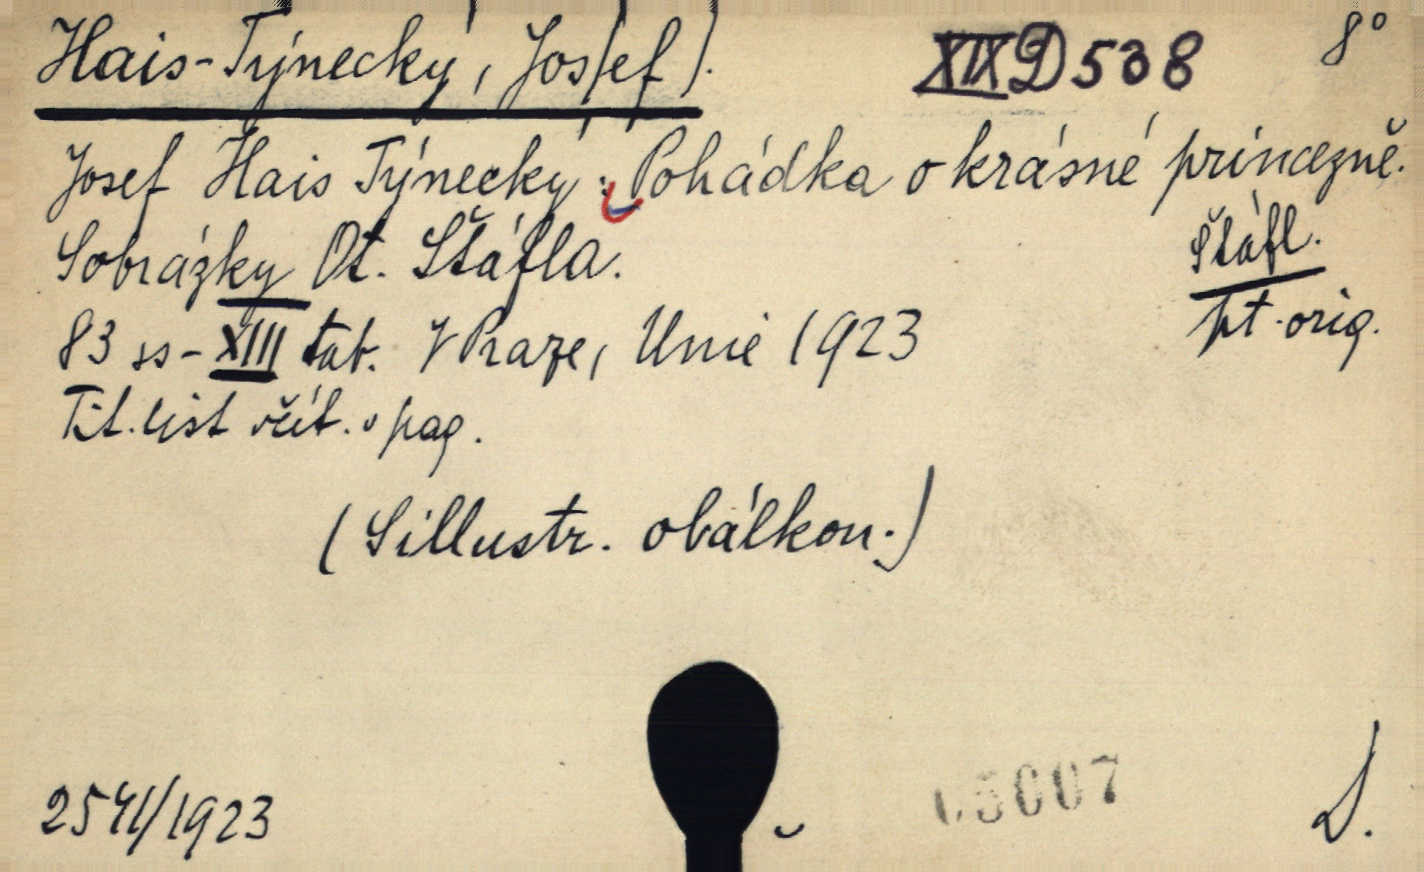 Hais-Týnecký, Jos(ef).
XIX D 538
8°
Josef Hais Týnecký: Pohádka o krásné princezně.
S obrázky Ot. Štáfla.
Štáfl.
83 ss - XIII tab. V Praze, Unie 1923
pt. orig.
Tit. list včít. v pag.
(S illustr. obálkou.)
2541/1923
5007